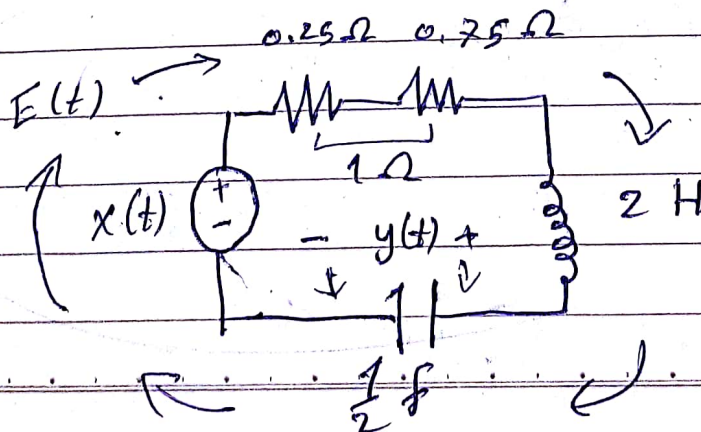 0.25Ω 0.75Ω
E(t)
1Ω
x(t)
+
-
2 H
- y(t) +
1/2 f